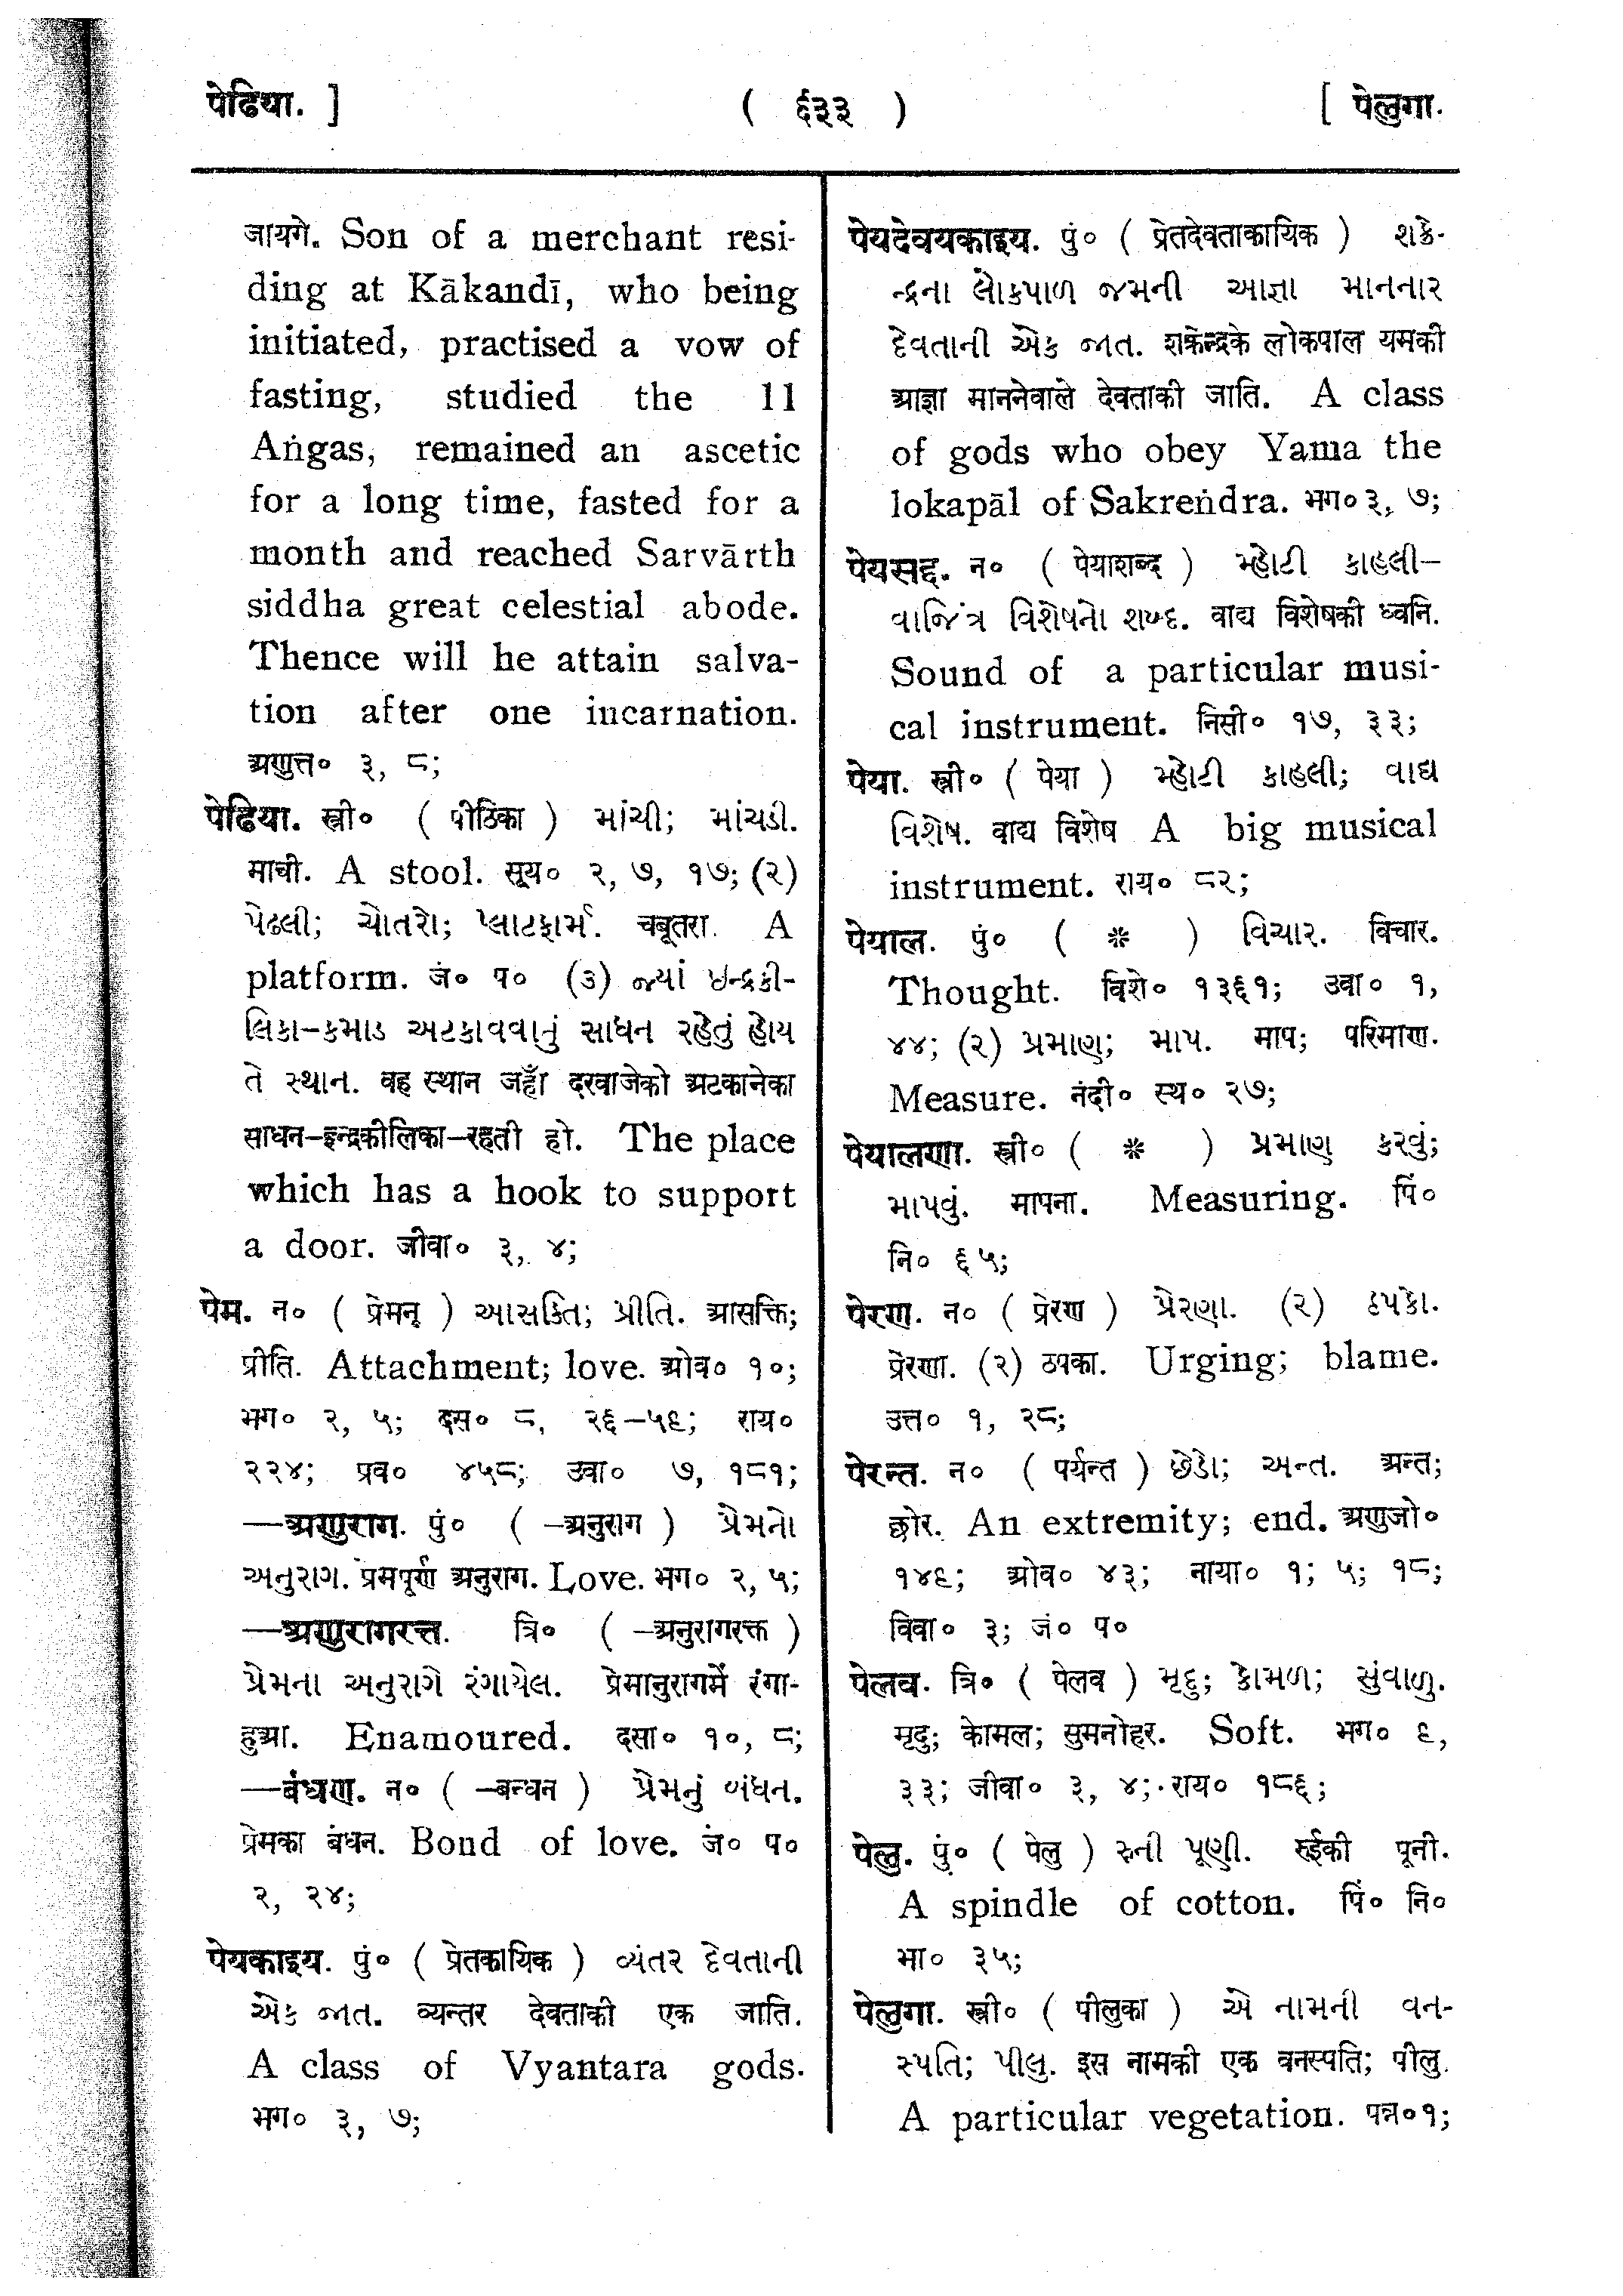 पेढिया. ]
( ६३३ )
[ पेलुगा.
जायगे. Son of a merchant resi-
ding at Kākandī, who being
initiated, practised a vow of
fasting, studied the 11
Aṅgas, remained an ascetic
for a long time, fasted for a
month and reached Sarvārth
siddha great celestial abode.
Thence will he attain salva-
tion after one incarnation.
अणुत्त० ३, ८;
पेढिया. स्त्री० ( पीठिका ) માંચી; માંચડી.
माची. A stool. सूय० २, ७, १७; (२)
પેઢલી; ચોતરો; પ્લાટફાર્મ. चबूतरा. A
platform. जं० प० (૩) જ્યાં ઇન્દ્રકી-
લિકા-કમાડ અટકાવવાનું સાધન રહેતું હોય
તે સ્થાન. वह स्थान जहाँ दरवाजेको अटकानेका
साधन-इन्द्रकीलिका-रहती हो. The place
which has a hook to support
a door. जीवा० ३, ४;
पेम. न० ( प्रेमन् ) આસક્તિ; પ્રીતિ. आसक्ति;
प्रीति. Attachment; love. ओव० १०;
भग० २, ५; दस० ८, २६-५९; राय०
२२४; प्रव० ४५८; उवा० ७, १८१;
—अणुराग. पुं० ( -अनुराग ) પ્રેમનો
અનુરાગ. प्रेमपूर्ण अनुराग. Love. भग० २, ५;
—अणुरागरत्त. त्रि० ( -अनुरागरक्त )
પ્રેમના અનુરાગે રંગાયેલ. प्रेमानुरागमें रंगा-
हुआ. Enamoured. दसा० १०, ८;
—बंधण. न० ( -बन्धन ) પ્રેમનું બંધન.
प्रेमका बंधन. Bond of love. जं० प०
२, २४;
पेयकाइय. पुं० ( प्रेतकायिक ) વ્યંતર દેવતાની
એક જાત. व्यन्तर देवताकी एक जाति.
A class of Vyantara gods.
भग० ३, ७;
पेयदेवयकाइय. पुं० ( प्रेतदेवताकायिक ) શક્રે-
ન્દ્રના લોકપાળ જમની આજ્ઞા માનનાર
દેવતાની એક જાત. शक्रेन्द्रके लोकपाल यमकी
आज्ञा माननेवाले देवताकी जाति. A class
of gods who obey Yama the
lokapāl of Sakreṅdra. भग० ३, ७;
पेयसद्द. न० ( पेयाशब्द ) મ્હોટી કાહલી-
વાજિંત્ર વિશેષનો શબ્દ. वाद्य विशेषकी ध्वनि.
Sound of a particular musi-
cal instrument. निसी० १७, ३३;
पेया. स्त्री० ( पेया ) મ્હોટી કાહલી; વાદ્ય
વિશેષ. वाद्य विशेष A big musical
instrument. राय० ८२;
पेयाल. पुं० ( * ) વિચાર. विचार.
Thought. विशे० १३६१; उवा० १,
४४; (२) પ્રમાણ; માપ. माप; परिमाण.
Measure. नंदी० स्थ० २७;
पेयालणा. स्त्री० ( * ) પ્રમાણ કરવું;
માપવું. मापना. Measuring. पिं०
नि० ६५;
पेरण. न० ( प्रेरण ) પ્રેરણા. (૨) ઠપકો.
प्रेरणा. (२) ठपका. Urging; blame.
उत्त० १, २८;
पेरन्त. न० ( पर्यन्त ) છેડો; અન્ત. अन्त;
छोर. An extremity; end. अणुजो०
१४९; ओव० ४३; नाया० १; ५; १८;
विवा० ३; जं० प०
पेलव. त्रि० ( पेलव ) મૃદુ; કોમળ; સુંવાળુ.
मृदु; कोमल; सुमनोहर. Soft. भग० ९,
३३; जीवा० ३, ४; राय० १८६;
पेलु. पुं० ( पेलु ) રુની પૂણી. रुईकी पूनी.
A spindle of cotton. पिं० नि०
भा० ३५;
पेलुगा. स्त्री० ( पीलुका ) એ નામની વન-
સ્પતિ; પીલુ. इस नामकी एक वनस्पति; पीलु.
A particular vegetation. पन्न० १;